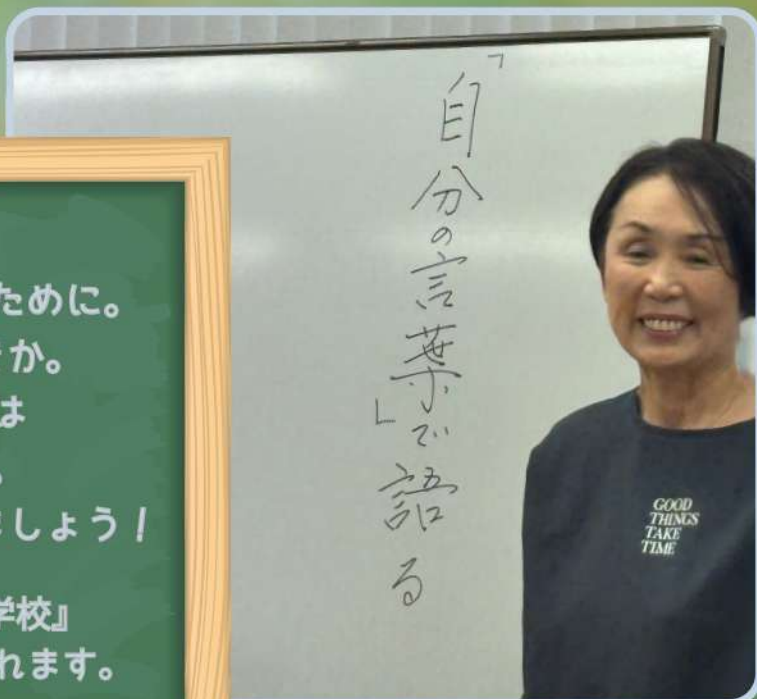 ために。
か。
は
ましょう!
学校』
れます。
「自分の言葉」で語る
GOOD
THINGS
TAKE
TIME